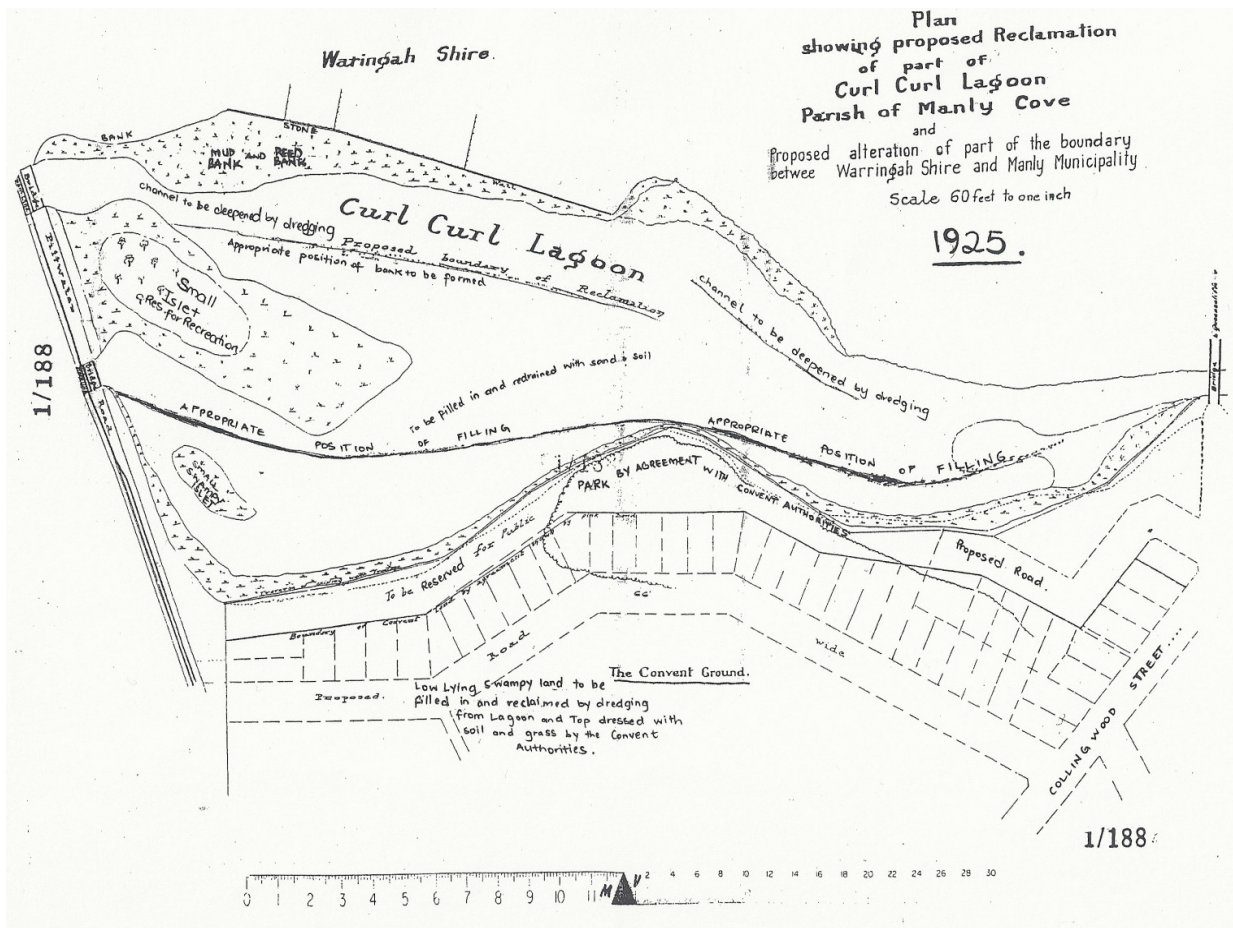 Plan
showing proposed Reclamation
of part of
Curl Curl Lagoon
Parish of Manly Cove
and
Proposed alteration of part of the boundary
betwee Warringah Shire and Manly Municipality
Scale 60 feet to one inch
1925.
Waringah Shire.
BANK
STONE
WALL
MUD AND REED
BANK BANK
channel to be deepened by dredging
Curl Curl Lagoon
Proposed boundary of Reclamation
Appropriate position of bank to be formed
Small
Islet
Res. for Recreation
channel to be deepened by dredging
Bridge
Pittwater
Bridge
Road
1/188
To be filled in and redrained with sand & soil
APPROPRIATE POSITION OF FILLING
APPROPRIATE POSITION OF FILLING
Bridge
SMALL
SWAMPY
ISLET
PARK BY AGREEMENT WITH CONVENT AUTHORITIES
To be Reserved for Public
Boundary of Convent Land by agreement
Proposed Road.
66'
Road
wide
Proposed.
The Convent Ground.
Low Lying Swampy land to be
filled in and reclaimed by dredging
from Lagoon and Top dressed with
soil and grass by the Convent
Authorities.
COLLINGWOOD STREET
1/188
0 1 2 3 4 5 6 7 8 9 10 11 M V 2 4 6 8 10 12 14 16 18 20 22 24 26 28 30